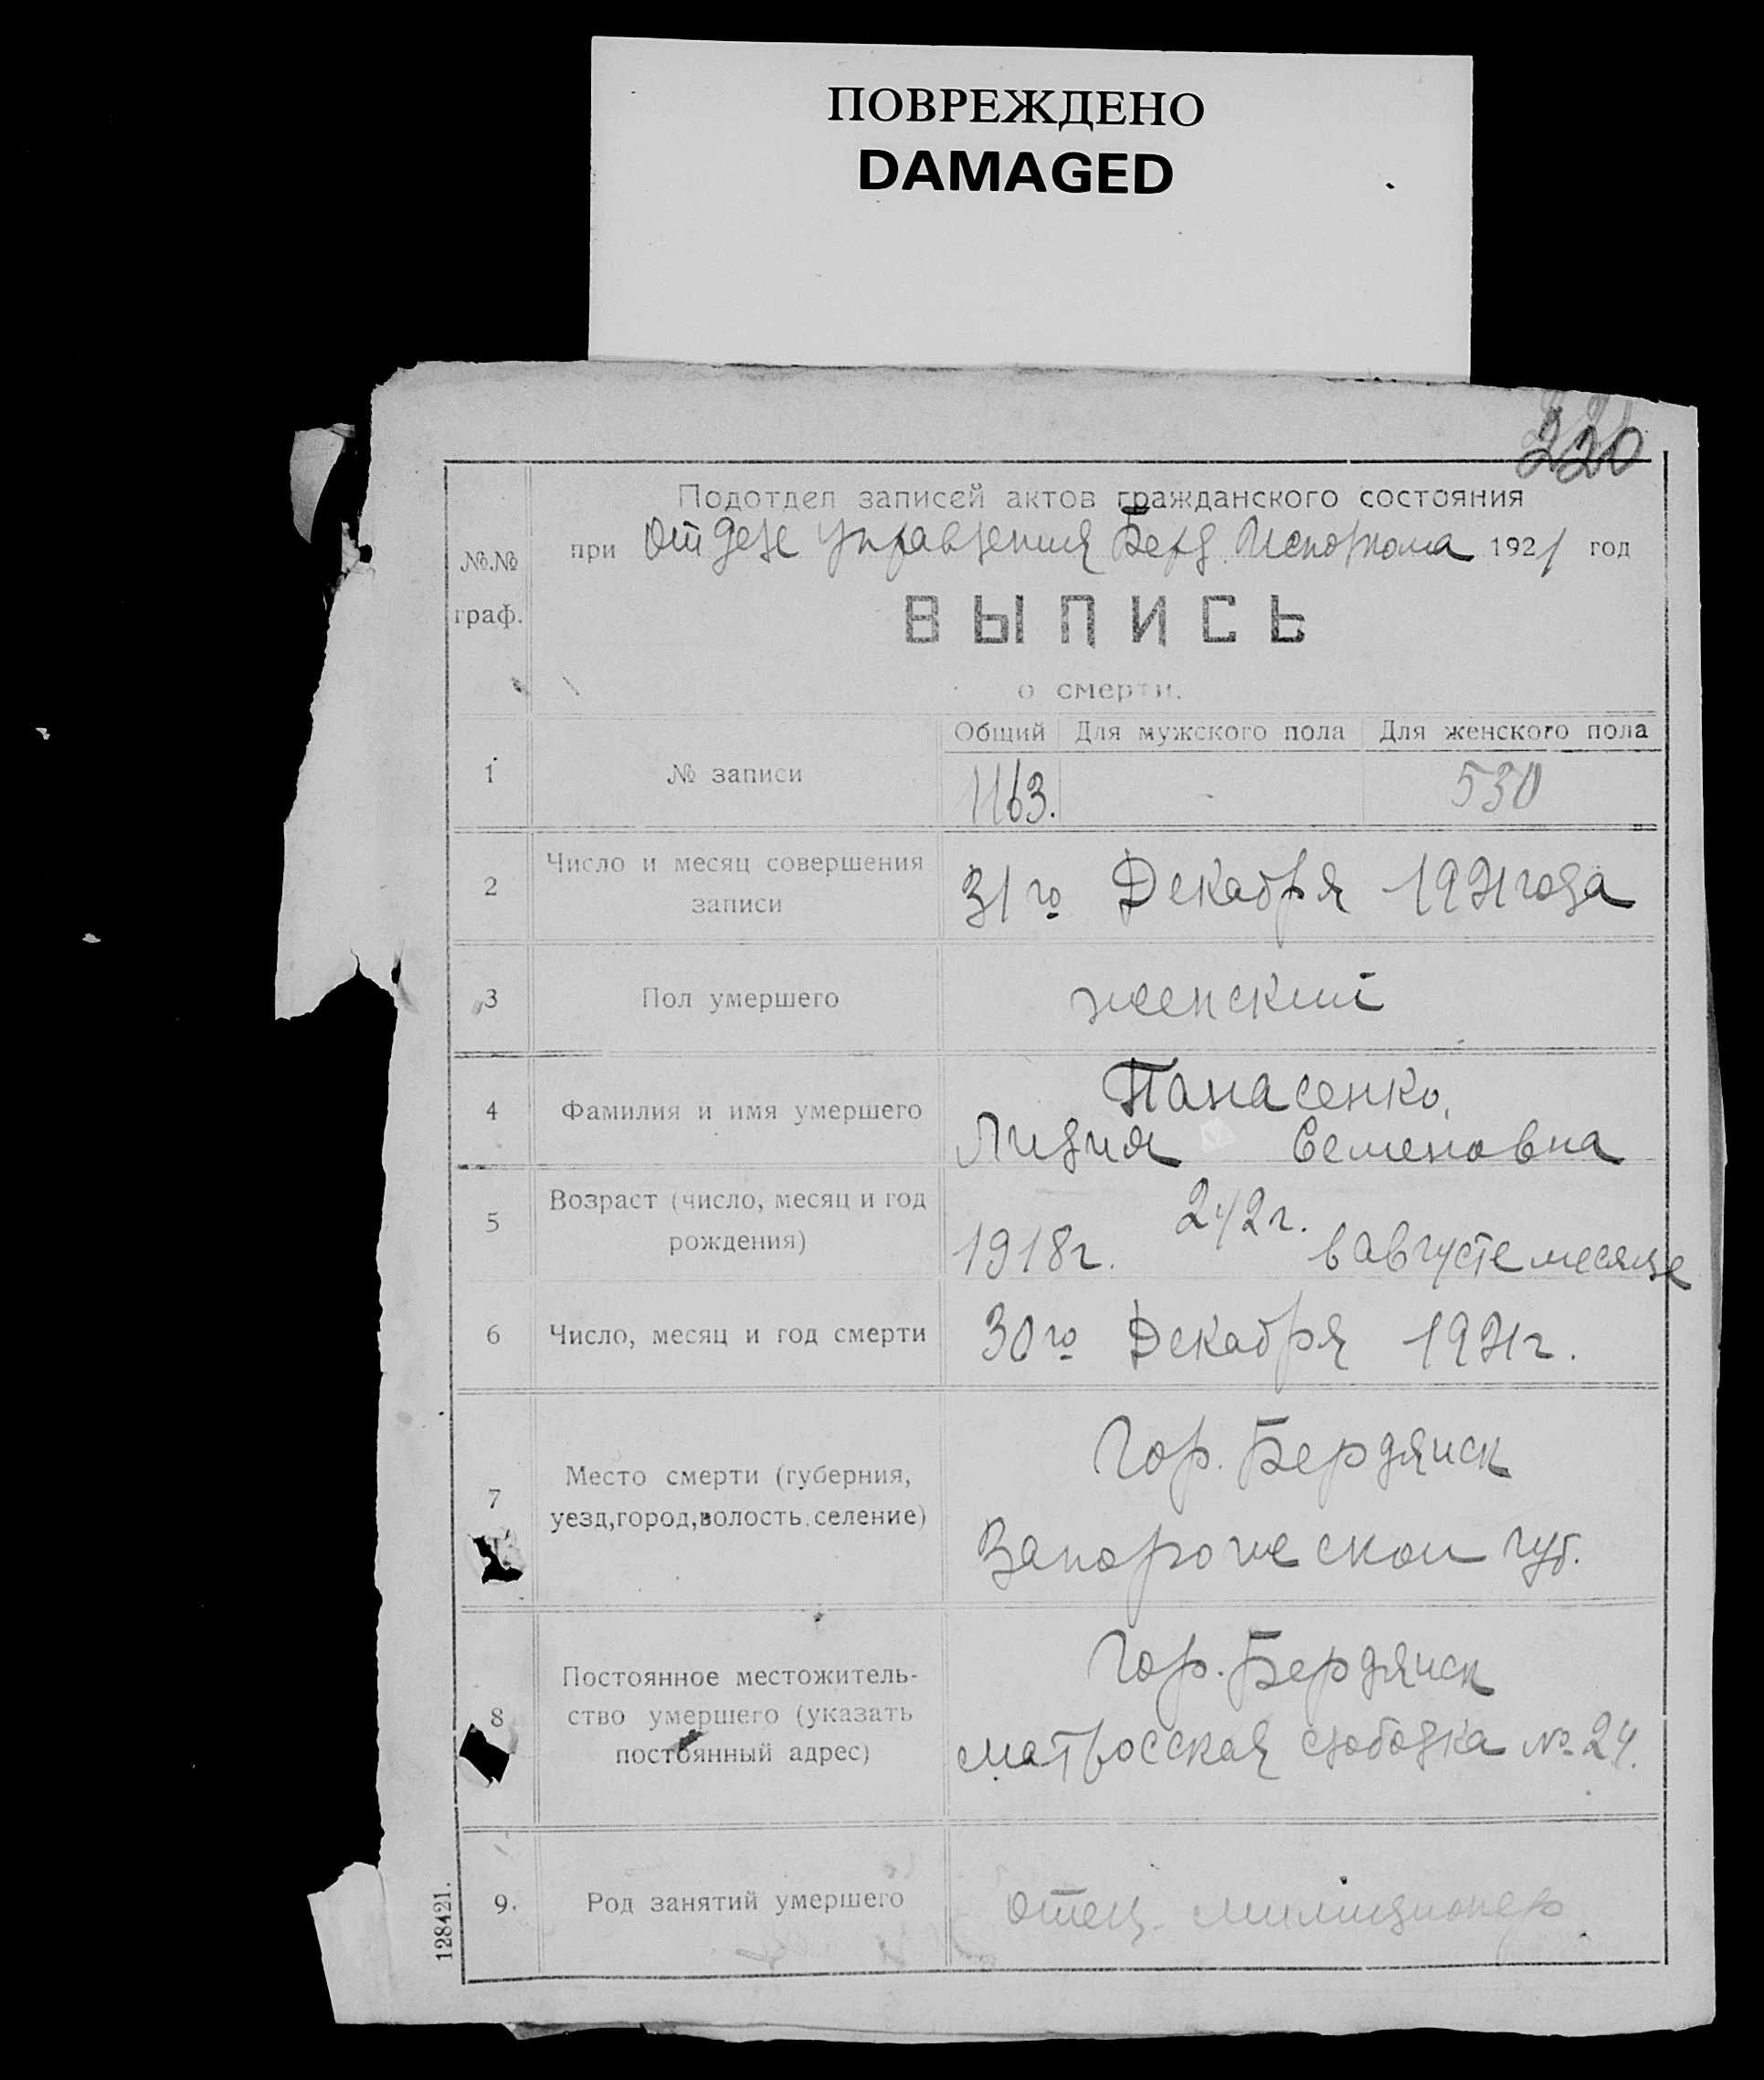 ПОВРЕЖДЕНО
DAMAGED
220
Подотдел записей актов гражданского состояния
№.№ граф.
при Отделе Управления Берд. Исполкома 1921 год
ВЫПИСЬ
о смерти.
Общий Для мужского пола Для женского пола
1 № записи 1163. - 530
2 Число и месяц совершения
записи
31го Декабря 1921 года
3 Пол умершего женский
4 Фамилия и имя умершего
Панасенко
Лидия Семеновна
5 Возраст (число, месяц и год
рождения)
1918г. в августе месяце
6 Число, месяц и год смерти 30го Декабря 1921г.
7 Место смерти (губерния,
уезд,город,волость.селение)
Гор. Бердянск
Запорожской губ.
8 Постоянное местожитель-
ство умершего (указать
постоянный адрес)
Гор. Бердянск
матросская слободка № 24.
9. Род занятий умершего отец - милиционер
128421.